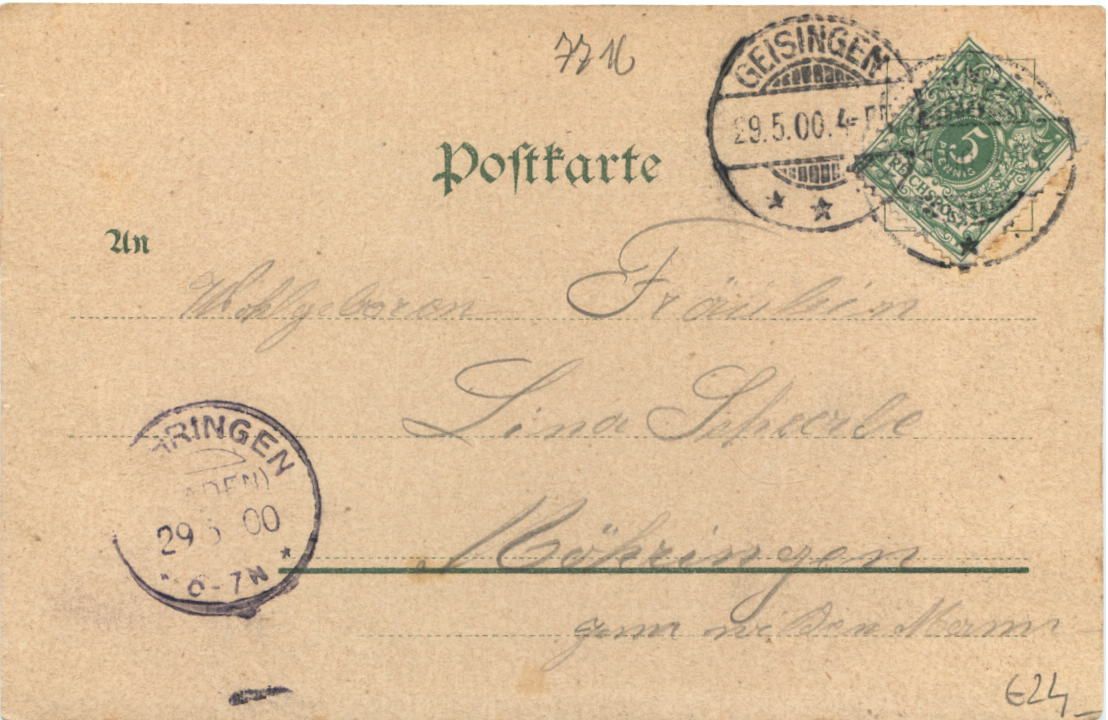 77 16
GEISINGEN
29.5.00.4-
5
PFENNIG
REICHSPOST
Postkarte
An
Wohlgeboren Fräulein
Lina
Möhringen
zum wilden Mann
RINGEN
ADEN)
29 5 00
6-7N
€24